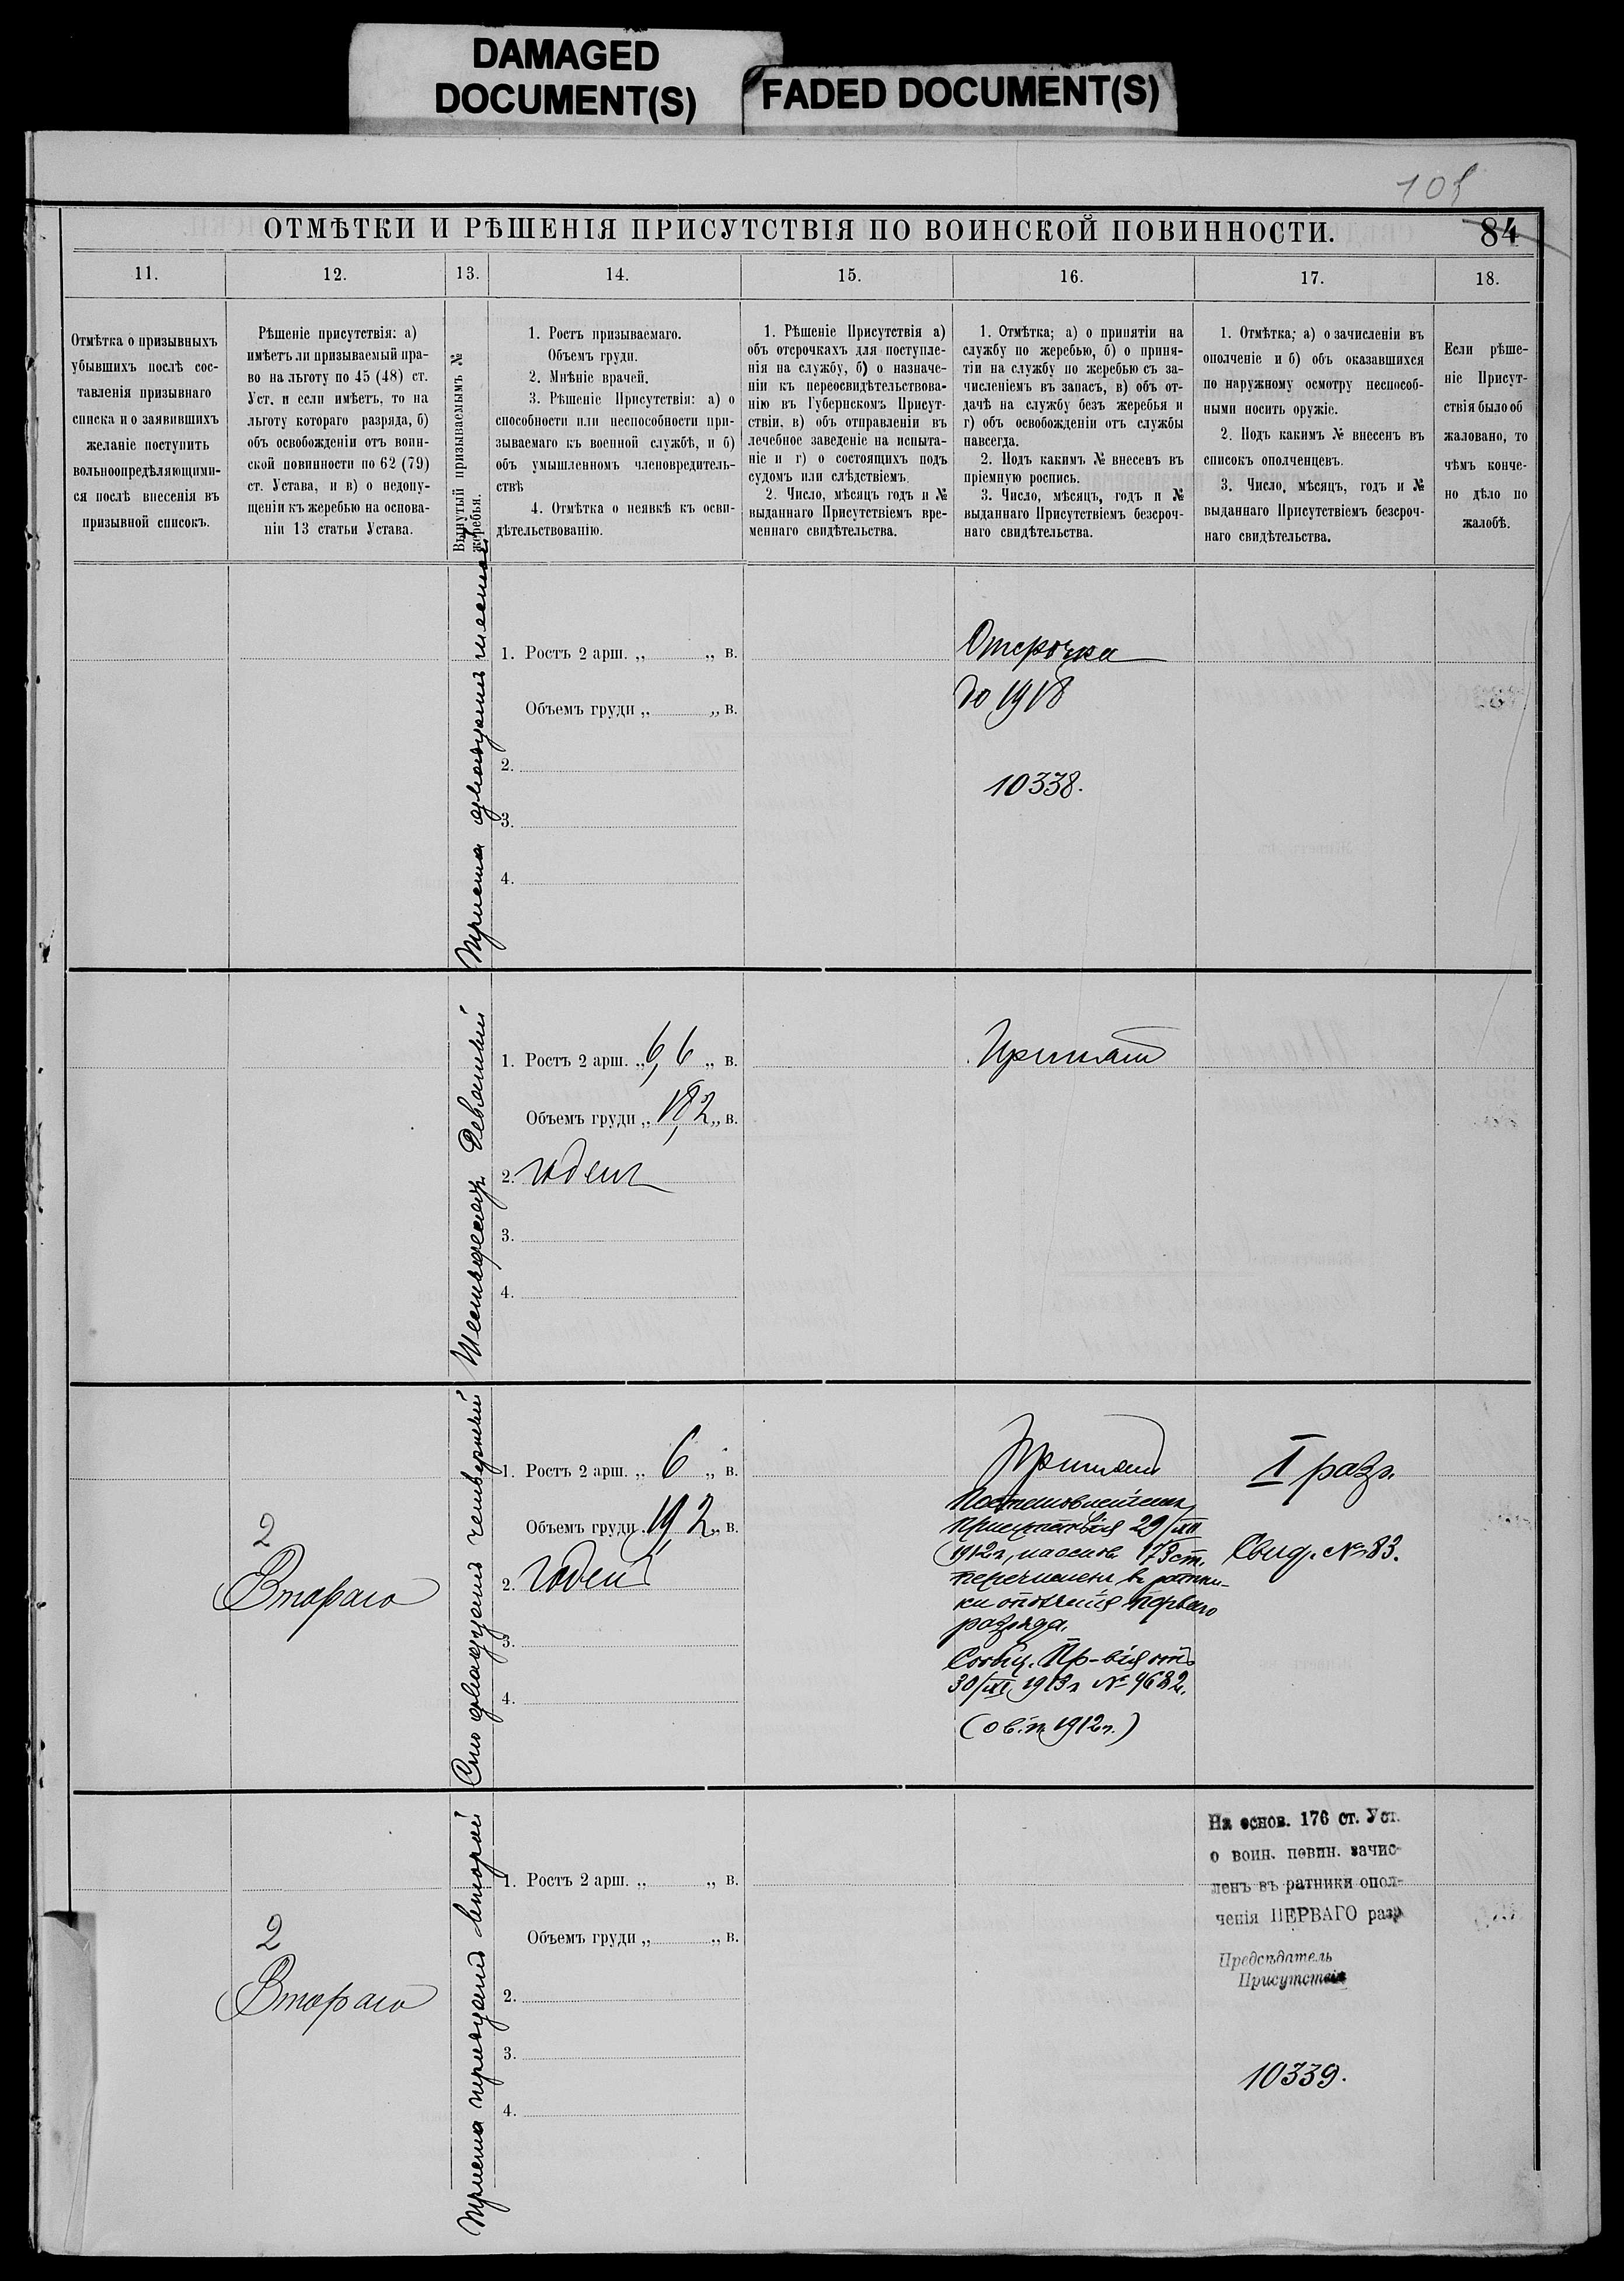 DAMAGED
DOCUMENT(S)
FADED DOCUMENT(S)
105
84
ОТМѢТКИ И РѢШЕНІЯ ПРИСУТСТВІЯ ПО ВОИНСКОЙ ПОВИННОСТИ.
11.
12.
13.
14.
15.
16.
17.
18.
Отмѣтка о призывныхъ
убывшихъ послѣ сос-
тавленія призывнаго
списка и о заявившихъ
желаніе поступить
вольноопредѣляющими-
ся послѣ внесенія въ
призывной списокъ.
Рѣшеніе присутствія: а)
имѣетъ ли призываемый пра-
во на льготу по 45 (48) ст.
Уст. и если имѣетъ, то на
льготу котораго разряда, б)
объ освобожденіи отъ воин-
ской повинности по 62 (79)
ст. Устава, и в) о недопу-
щеніи къ жеребью на основа-
ніи 13 статьи Устава.
Вынутый призываемымъ №
жеребья.
1. Ростъ призываемаго.
Объемъ груди.
2. Мнѣніе врачей.
3. Рѣшеніе Присутствія: а) о
способности или неспособности при-
зываемаго къ военной службѣ, и б)
объ умышленномъ членовредитель-
ствѣ
4. Отмѣтка о неявкѣ къ осви-
дѣтельствованію.
1. Рѣшеніе Присутствія а)
объ отсрочкахъ для поступле-
нія на службу, б) о назначе-
ніи къ переосвидѣтельствова-
нію въ Губернскомъ Присут-
ствіи, в) объ отправленіи въ
лечебное заведеніе на испыта-
ніе и г) о состоящихъ подъ
судомъ или слѣдствіемъ.
2. Число, мѣсяцъ годъ и №
выданнаго Присутствіемъ вре-
меннаго свидѣтельства.
1. Отмѣтка; а) о принятіи на
службу по жеребью, б) о приня-
тіи на службу по жеребью съ за-
численіемъ въ запасъ, в) объ от-
дачѣ на службу безъ жеребья и
г) объ освобожденіи отъ службы
навсегда.
2. Подъ какимъ № внесенъ въ
пріемную роспись.
3. Число, мѣсяцъ, годъ и №
выданнаго Присутствіемъ безсроч-
наго свидѣтельства.
1. Отмѣтка; а) о зачисленіи въ
ополченіе и б) объ оказавшихся
по наружному осмотру неспособ-
ными носить оружіе.
2. Подъ какимъ № внесенъ въ
списокъ ополченцевъ.
3. Число, мѣсяцъ, годъ и №
выданнаго Присутствіемъ безсроч-
наго свидѣтельства.
Если рѣше-
ніе Присут-
ствія было об
жаловано, то
чѣмъ конче-
но дѣло по
жалобѣ.
Триста двадцать шестой
1. Ростъ 2 арш. „ „ в.
Объемъ груди „ „ в.
2.
3.
4.
Отсрочка
до 1918
10338.
Шестьдесятъ Девятый
1. Ростъ 2 арш. „ 6,6 „ в.
Объемъ груди „ 18,2 „ в.
2. годенъ
3.
4.
Принятъ
2
Втораго
Сто двадцать четвертый
1. Ростъ 2 арш. „ 6 „ в.
Объемъ груди 19,2 „ в.
2. Годенъ
3.
4.
Принятъ
Постановленіемъ
Присутствія 29/XII
1912г, на основ. 173 ст.
перечисленъ въ ратни-
ки ополченія перваго
разряда.
Сообщ. Пр-вія отъ
30/XI 1913г № 9682.
(о в. п 1912г.)
I разр.
Свид. № 83.
2
Втораго
Триста тридцать второй
1. Ростъ 2 арш. „ „ в.
Объемъ груди „ „ в.
2.
3.
4.
На основ. 176 ст. Уст.
о воин. повин. зачис-
ленъ въ ратники опол-
ченія ПЕРВАГО разр
Предсѣдатель
Присутствія
10339.